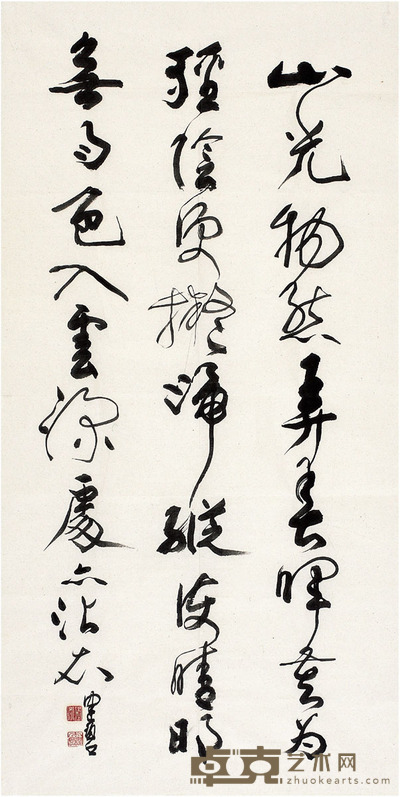 山光物態弄春暉莫为
輕陰便擬歸縱使晴明
無雨色入雲深處亦沾衣
卓克艺术网
zhuokearts.com